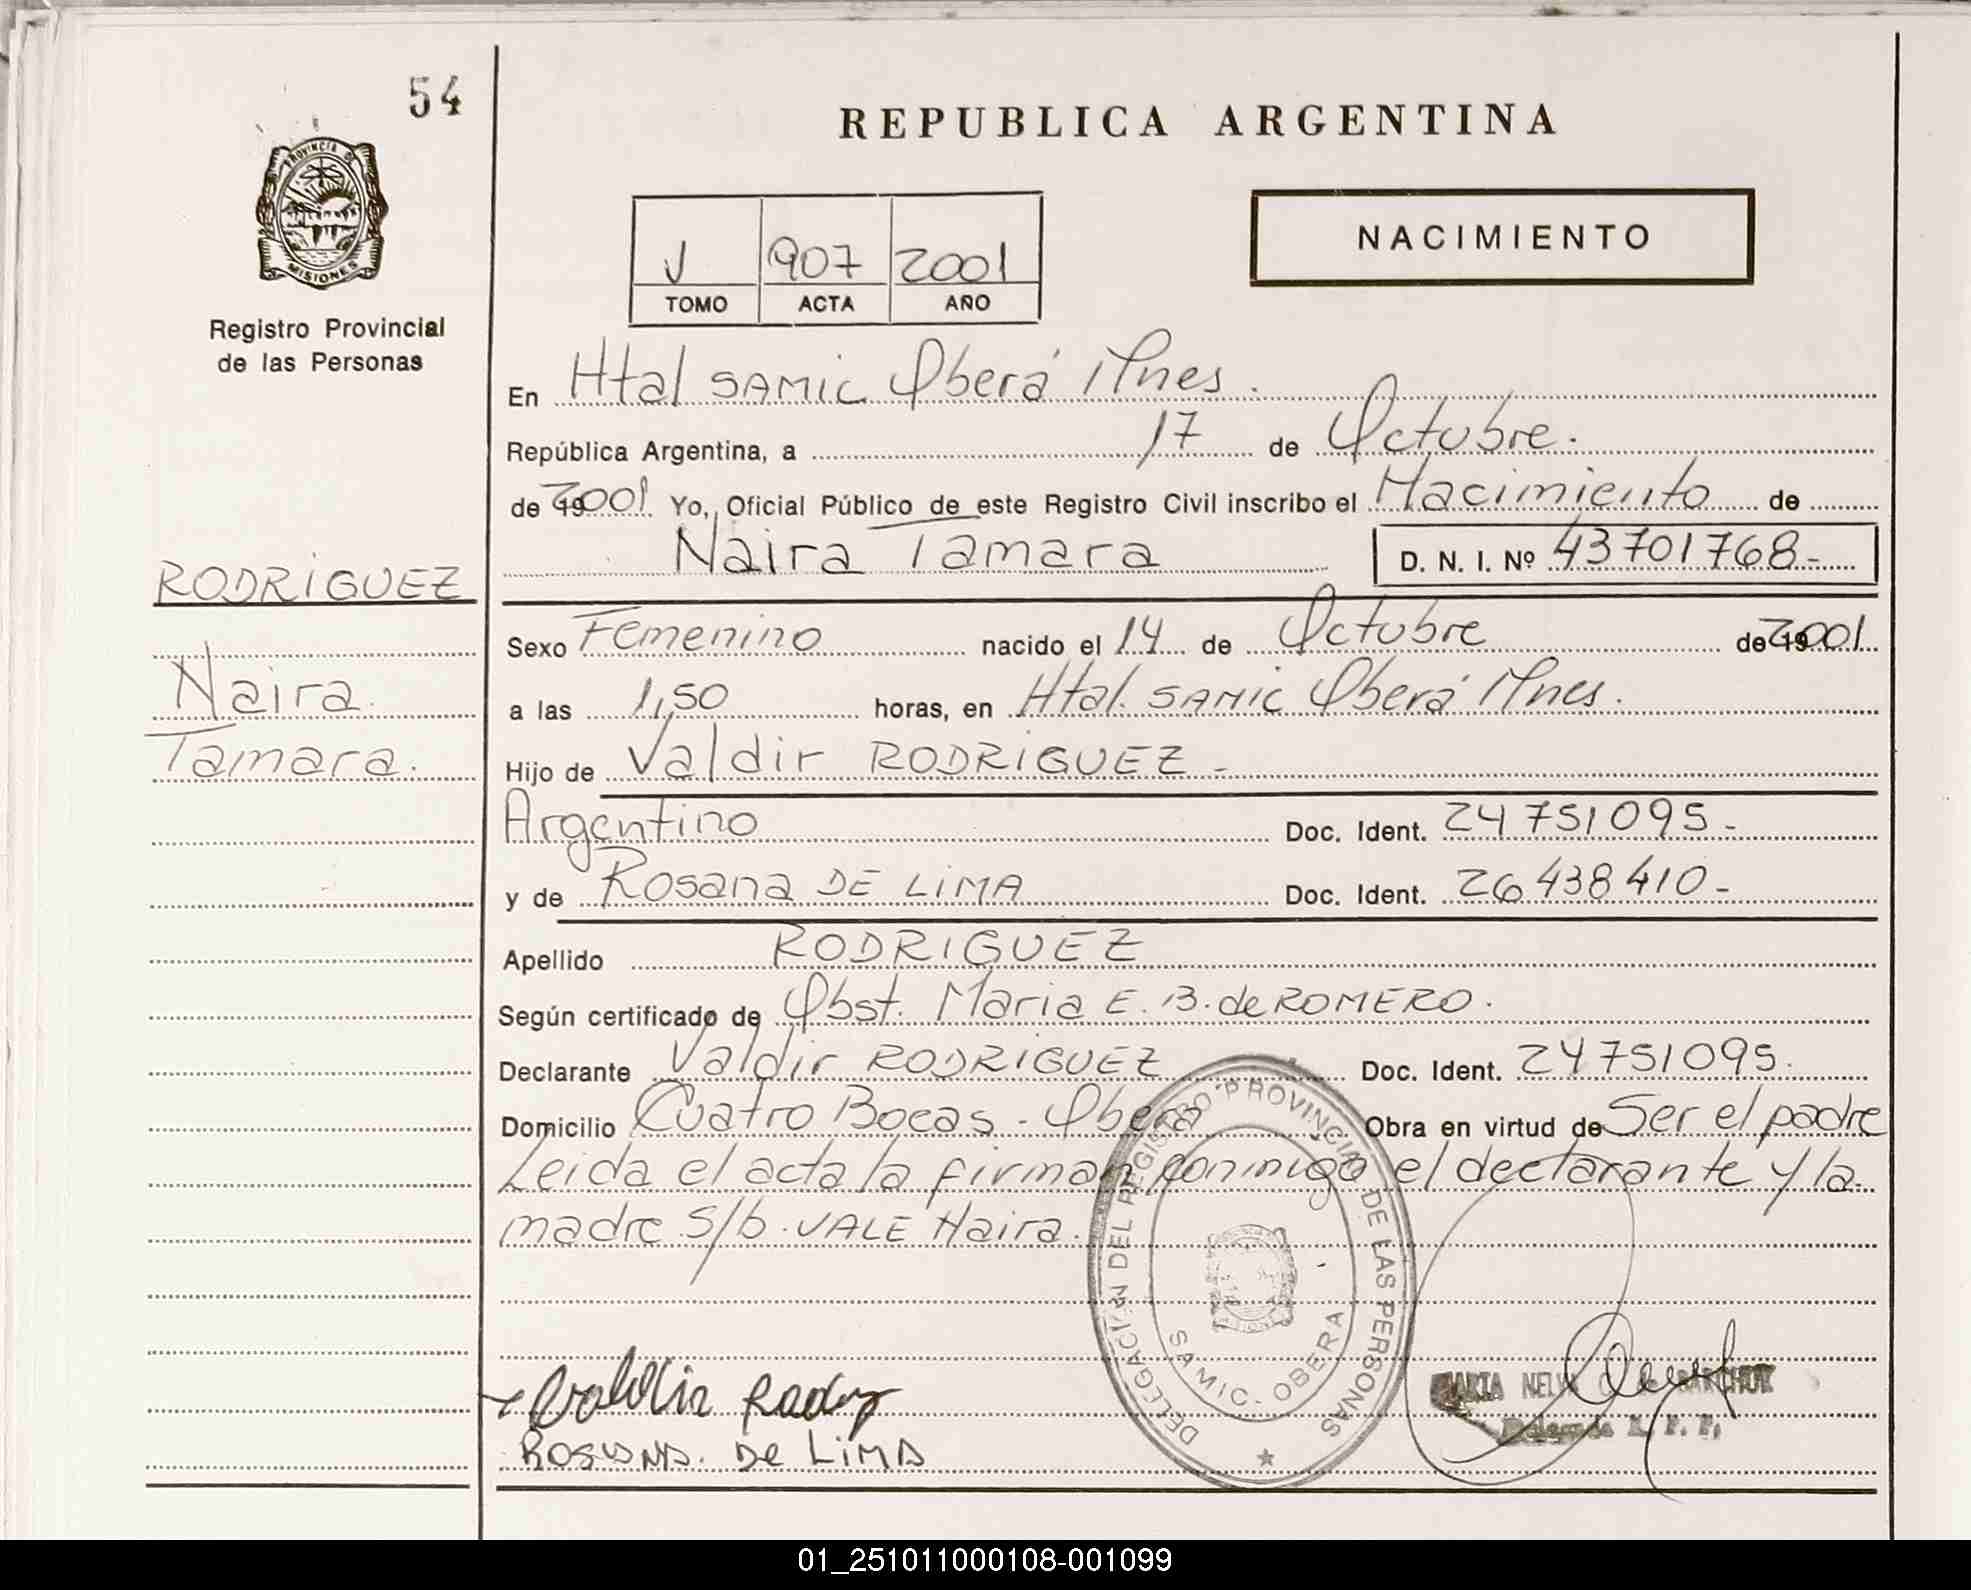 54
REPUBLICA ARGENTINA
PROVINCIA DE
MISIONES
Registro Provincial
de las Personas
V 907 2001
TOMO ACTA AÑO
NACIMIENTO
En Htal SAMIC Oberá Mnes.
República Argentina, a 17 de Octubre.
de 2001 Yo, Oficial Público de este Registro Civil inscribo el Nacimiento de
Naira Tamara D. N. I. Nº 43701768-
RODRIGUEZ
Naira
Tamara.
Sexo Femenino nacido el 14 de Octubre de 2001.
a las 1,50 horas, en Htal. SAMIC Oberá Mnes.
Hijo de Valdir RODRIGUEZ -
Argentino Doc. Ident. 24751095-
y de Rosana DE LIMA Doc. Ident. 26438410-
Apellido RODRIGUEZ
Según certificado de Obst. Maria E. B. de ROMERO.
Declarante Valdir RODRIGUEZ Doc. Ident. 24751095.
Domicilio Cuatro Bocas - Oberá Obra en virtud de Ser el padre
Leida el acta la firman conmigo el declarante y la
madre S/b. VALE Naira.
DELEGACIÓN DEL REGISTRO PROVINCIAL DE LAS PERSONAS
SAMIC - OBERA
Rosana. De LiMa
R. P. P.
01_251011000108-001099